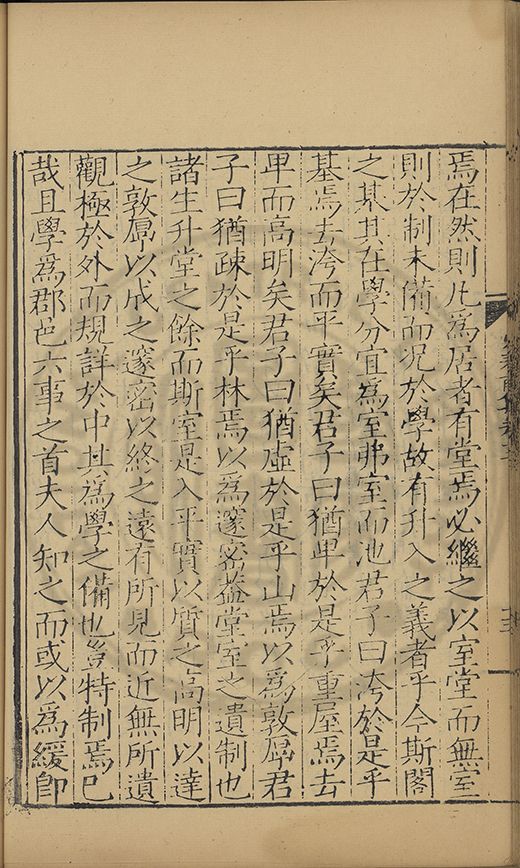 焉在然則凡為居者有堂焉必繼之以室堂而無室
則於制未備而况於學故有升入之義者乎今斯閣
之基其在學分宜為室弗室而池君子曰洿於是乎
基焉去洿而平實矣君子曰猶卑於是乎重屋焉去
卑而高明矣君子曰猶虛於是乎山焉以為敦厚君
子曰猶疎於是乎林焉以為邃密葢堂室之遺制也
諸生升堂之餘而斯室是入平實以質之高明以達
之敦厚以成之邃密以終之遠有所見而近無所遺
觀極於外而規詳於中其為學之備也豈特制焉已
哉且學為郡邑六事之首夫人知之而或以為緩卽